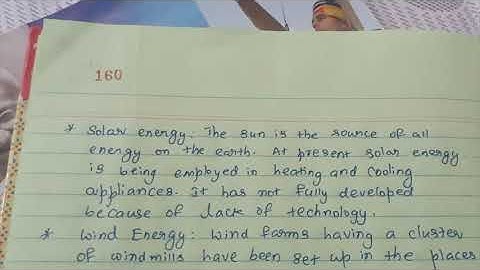 160
* Solar energy. The sun is the source of all
energy on the earth. At present solar energy
is being employed in heating and cooling
appliances. It has not fully developed
because of lack of technology.
* Wind Energy: Wind farms having a cluster
of windmills have been set up in the places